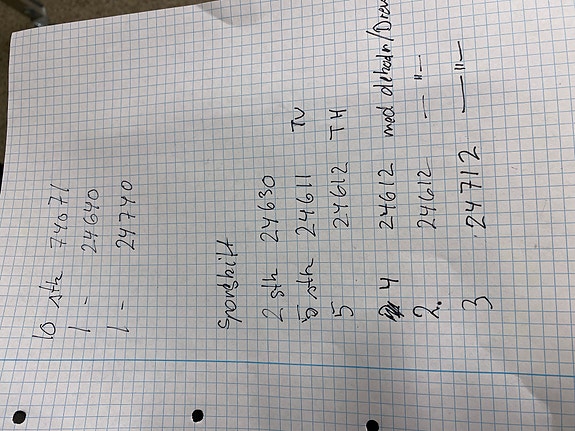 10 stk 74071
1 - 24640
1 - 24740
Sporskift
2 stk 24630
5 stk 24611 TV
5 24612 TH
4 24612 med
2. 24612 —"—
3 24712 —"—